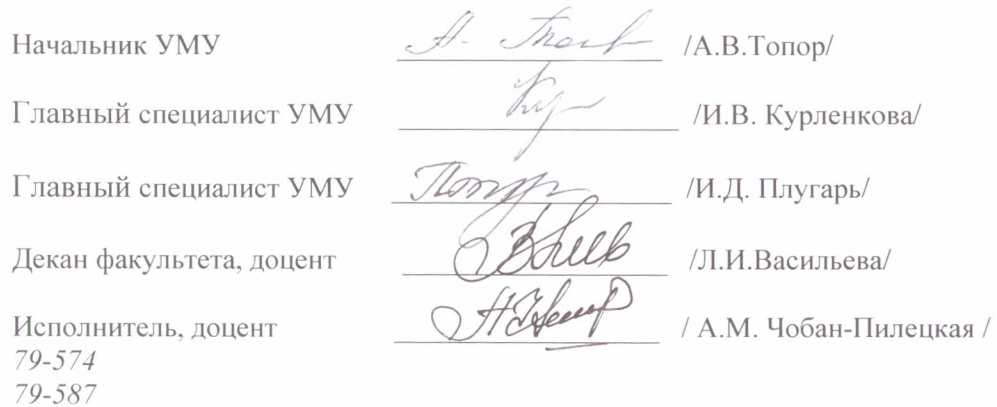 Начальник УМУ /А.В.Топор/
Главный специалист УМУ /И.В. Курленкова/
Главный специалист УМУ /И.Д. Плугарь/
Декан факультета, доцент /Л.И.Васильева/
Исполнитель, доцент / А.М. Чобан-Пилецкая /
79-574
79-587